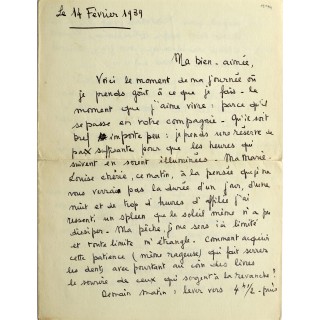 Le 14 Février 1939
Ma bien-aimée,
Voici le moment de ma journée où
je prends goût à ce que je fais - le
moment que j'aime vivre : parce qu'il
se passe en votre compagnie. Qu'il soit
bref importe peu : je prends une réserve de
paix suffisante pour que les heures qui
suivent en soient illuminées - Ma Marie-
Louise chérie, ce matin, à la pensée que je ne
vous verrais pas la durée d'un jour, d'une
nuit et de trop d'heures d'affilée j'ai
ressenti un spleen que le soleil même n'a pu
dissiper. Ma pêche, je me sens ici limité
et toute limite m'étrangle. Comment acquérir
cette patience (même rageuse) qui fait serrer
les dents avec pourtant au coin des lèvres
le sourire de ceux qui songent à la revanche ?
Demain matin : lever vers 4 h 1/2 - puis